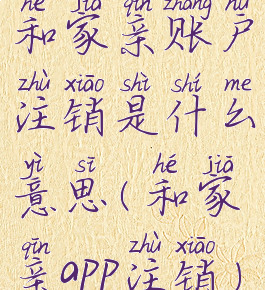 hé jiā qīn zhàng hù
和家亲账户
zhù xiāo shì shí me
注销是什么
yì sī hé jiā
意思(和家
qīn zhù xiāo
亲app注销)